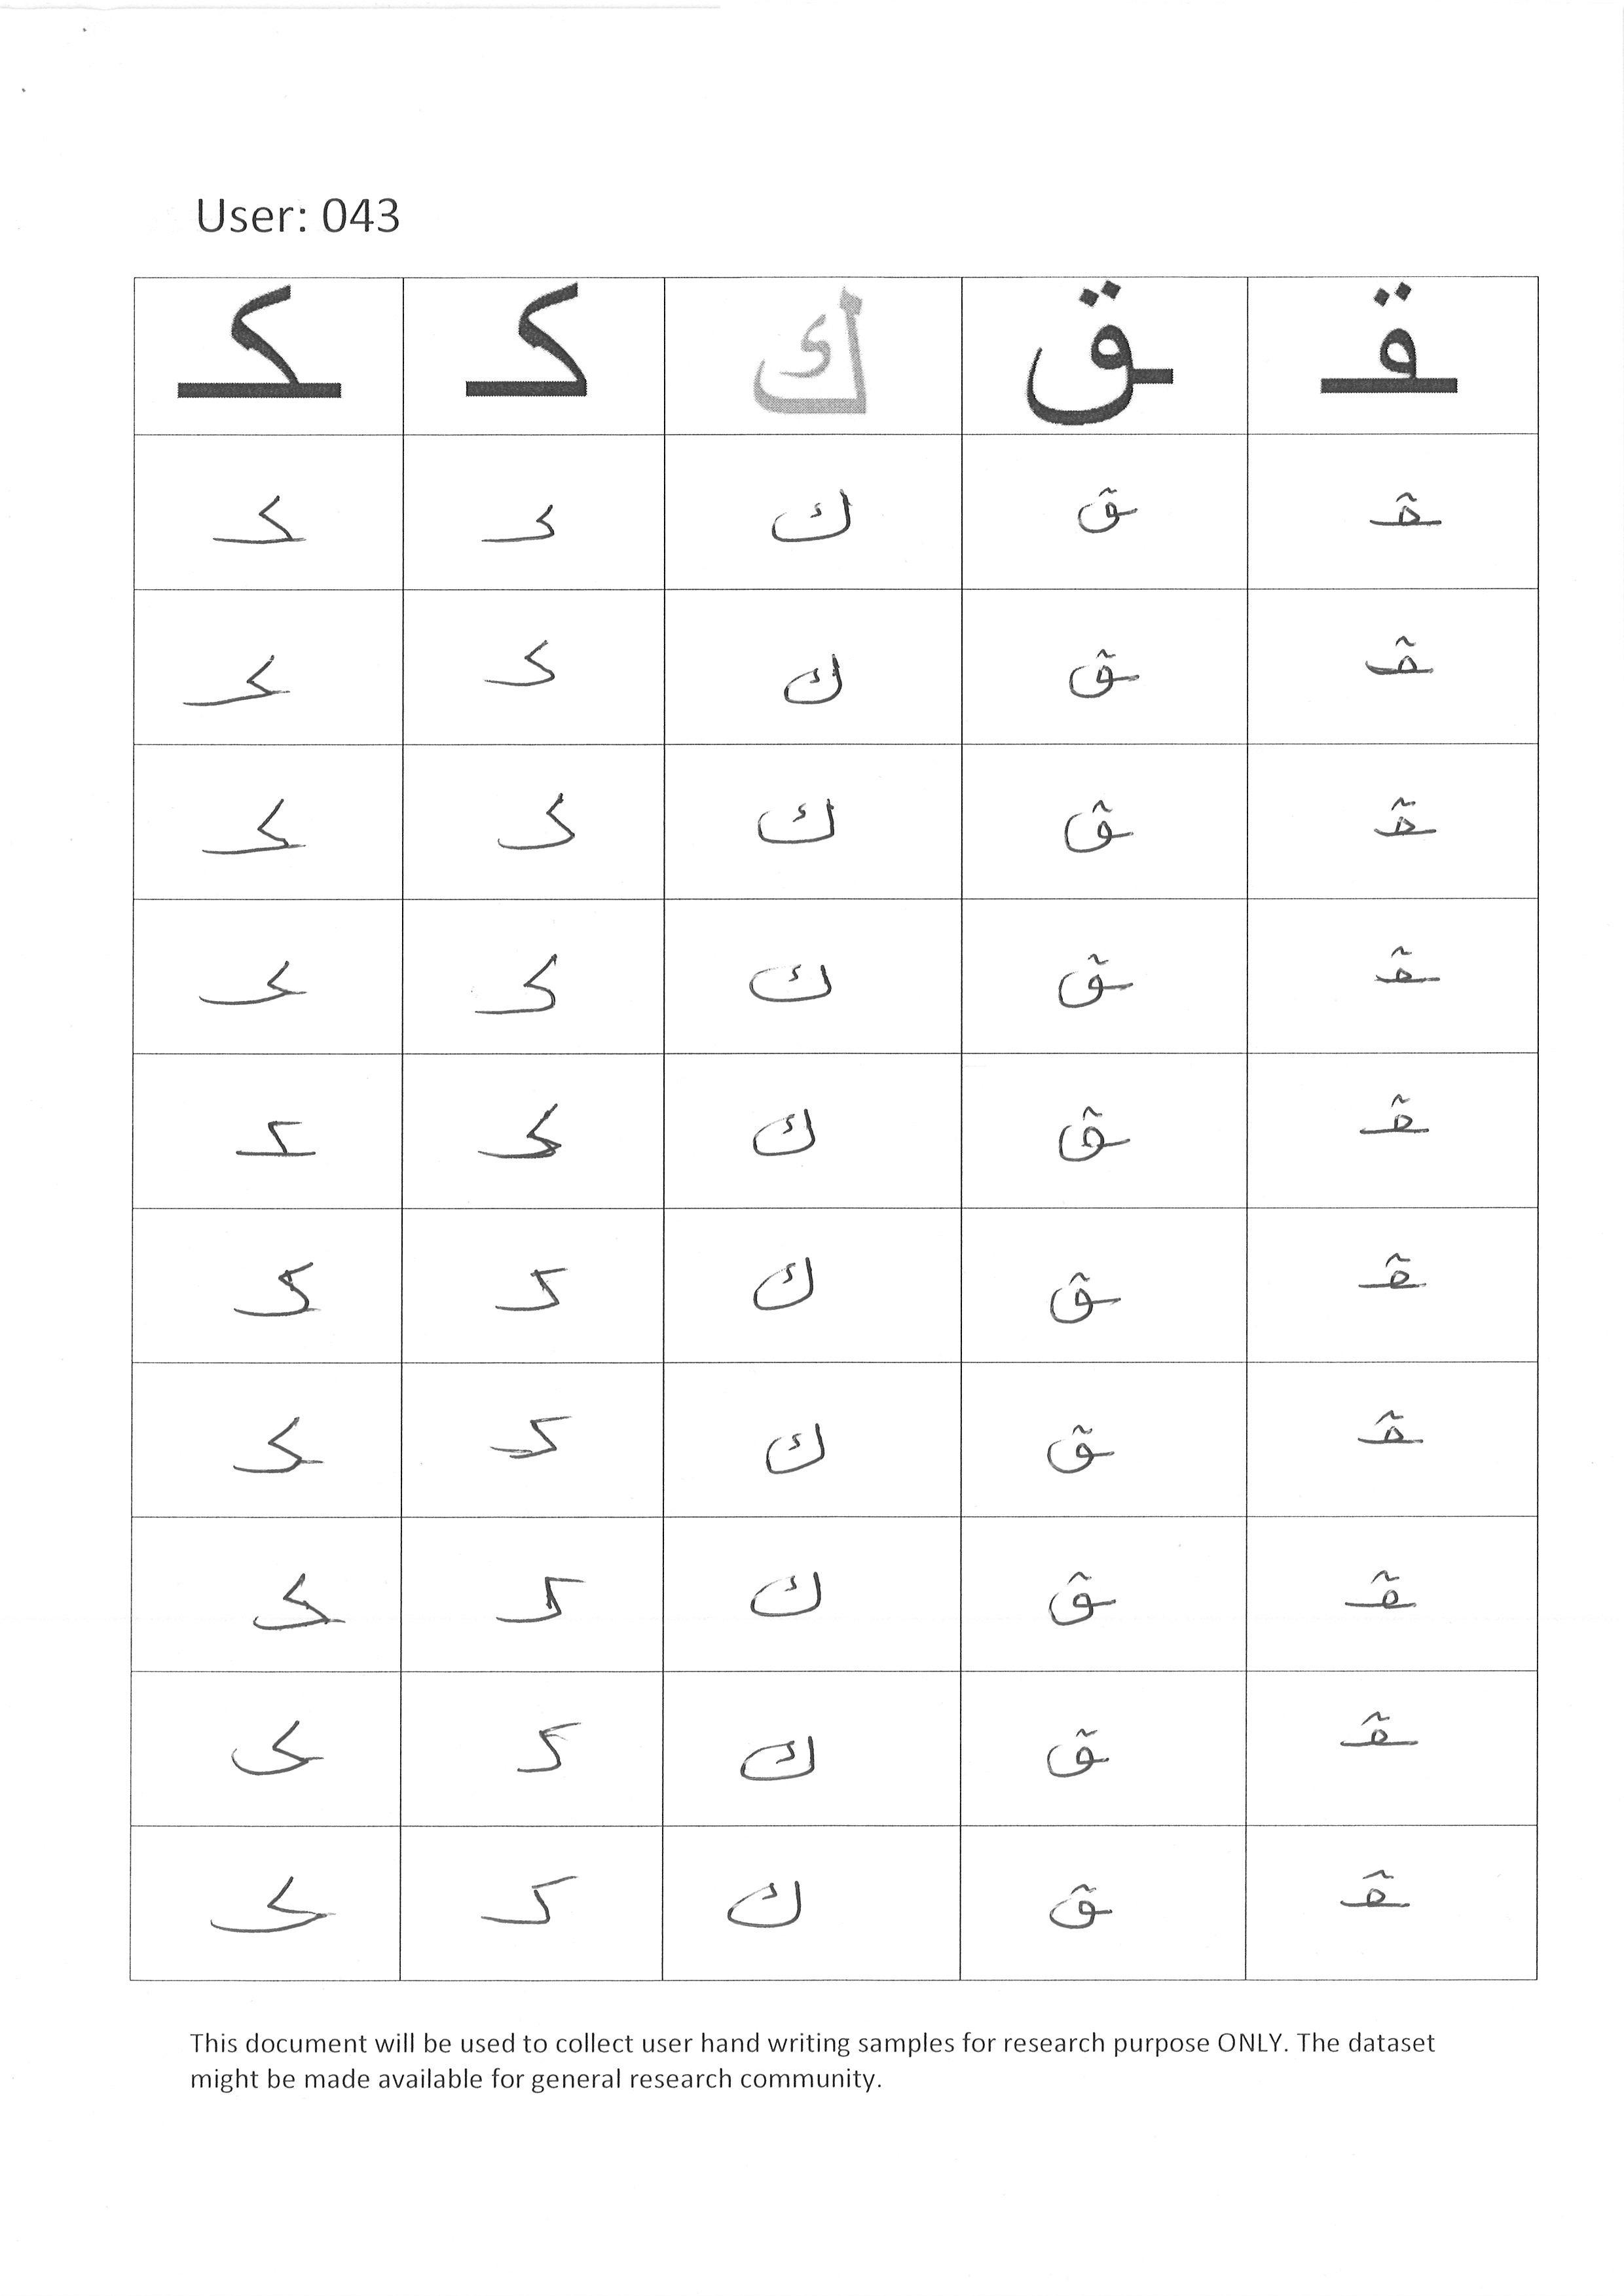 User: 043
ـقـ ـق ك كـ ـكـ
ـقـ ـق ك كـ ـكـ
ـقـ ـق ك كـ ـكـ
ـقـ ـق ك كـ ـكـ
ـقـ ـق ك كـ ـكـ
ـقـ ـق ك كـ ـكـ
ـقـ ـق ك كـ ـكـ
ـقـ ـق ك كـ ـكـ
ـقـ ـق ك كـ ـكـ
ـقـ ـق ك كـ ـكـ
ـقـ ـق ك كـ ـكـ
This document will be used to collect user hand writing samples for research purpose ONLY. The dataset
might be made available for general research community.